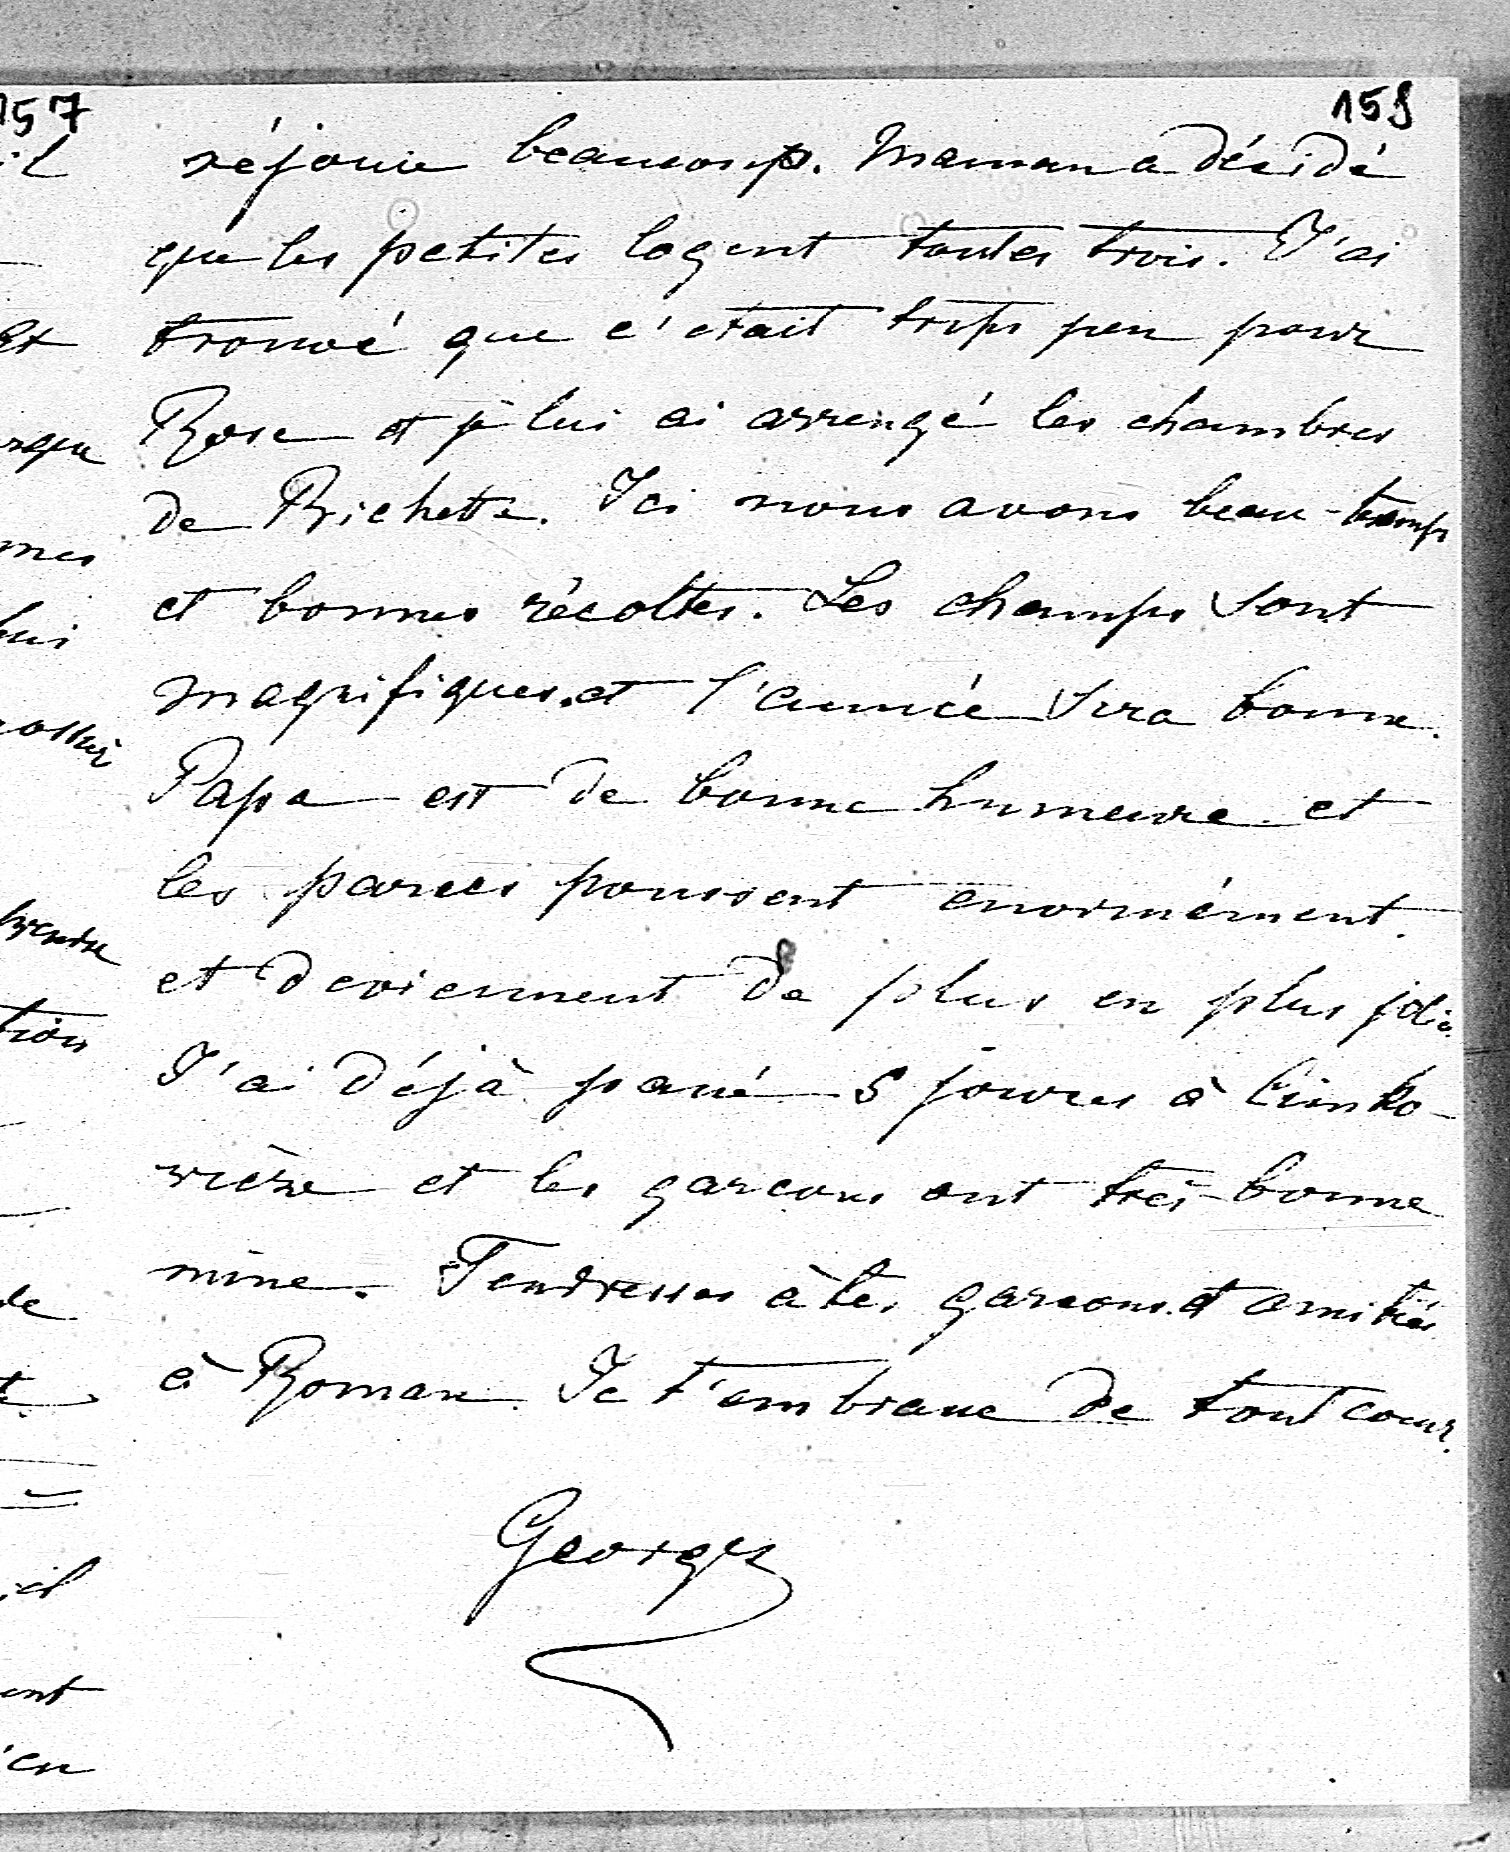 157
158
réjouie beaucoup. Maman a décidé
que les petites logent toutes trois. J'ai
trouvé que c'etait trop peu pour
Rose et je lui ai arrengé les chambres
de Richette. Ici nous avons beau-temps
et bonnes récoltes. Les champs sont
magnifiques et l'année sera bonne.
Papa est de bonne humeure et
les parces poussent enormément
et deviennent de plus en plus jolis.
J'ai déjà passé 5 jours à
et les garcons ont très-bonne
mine. Tendresses à tes garcons et amitiés
à Roman. Je t'embrasse de tout coeur.
Georges